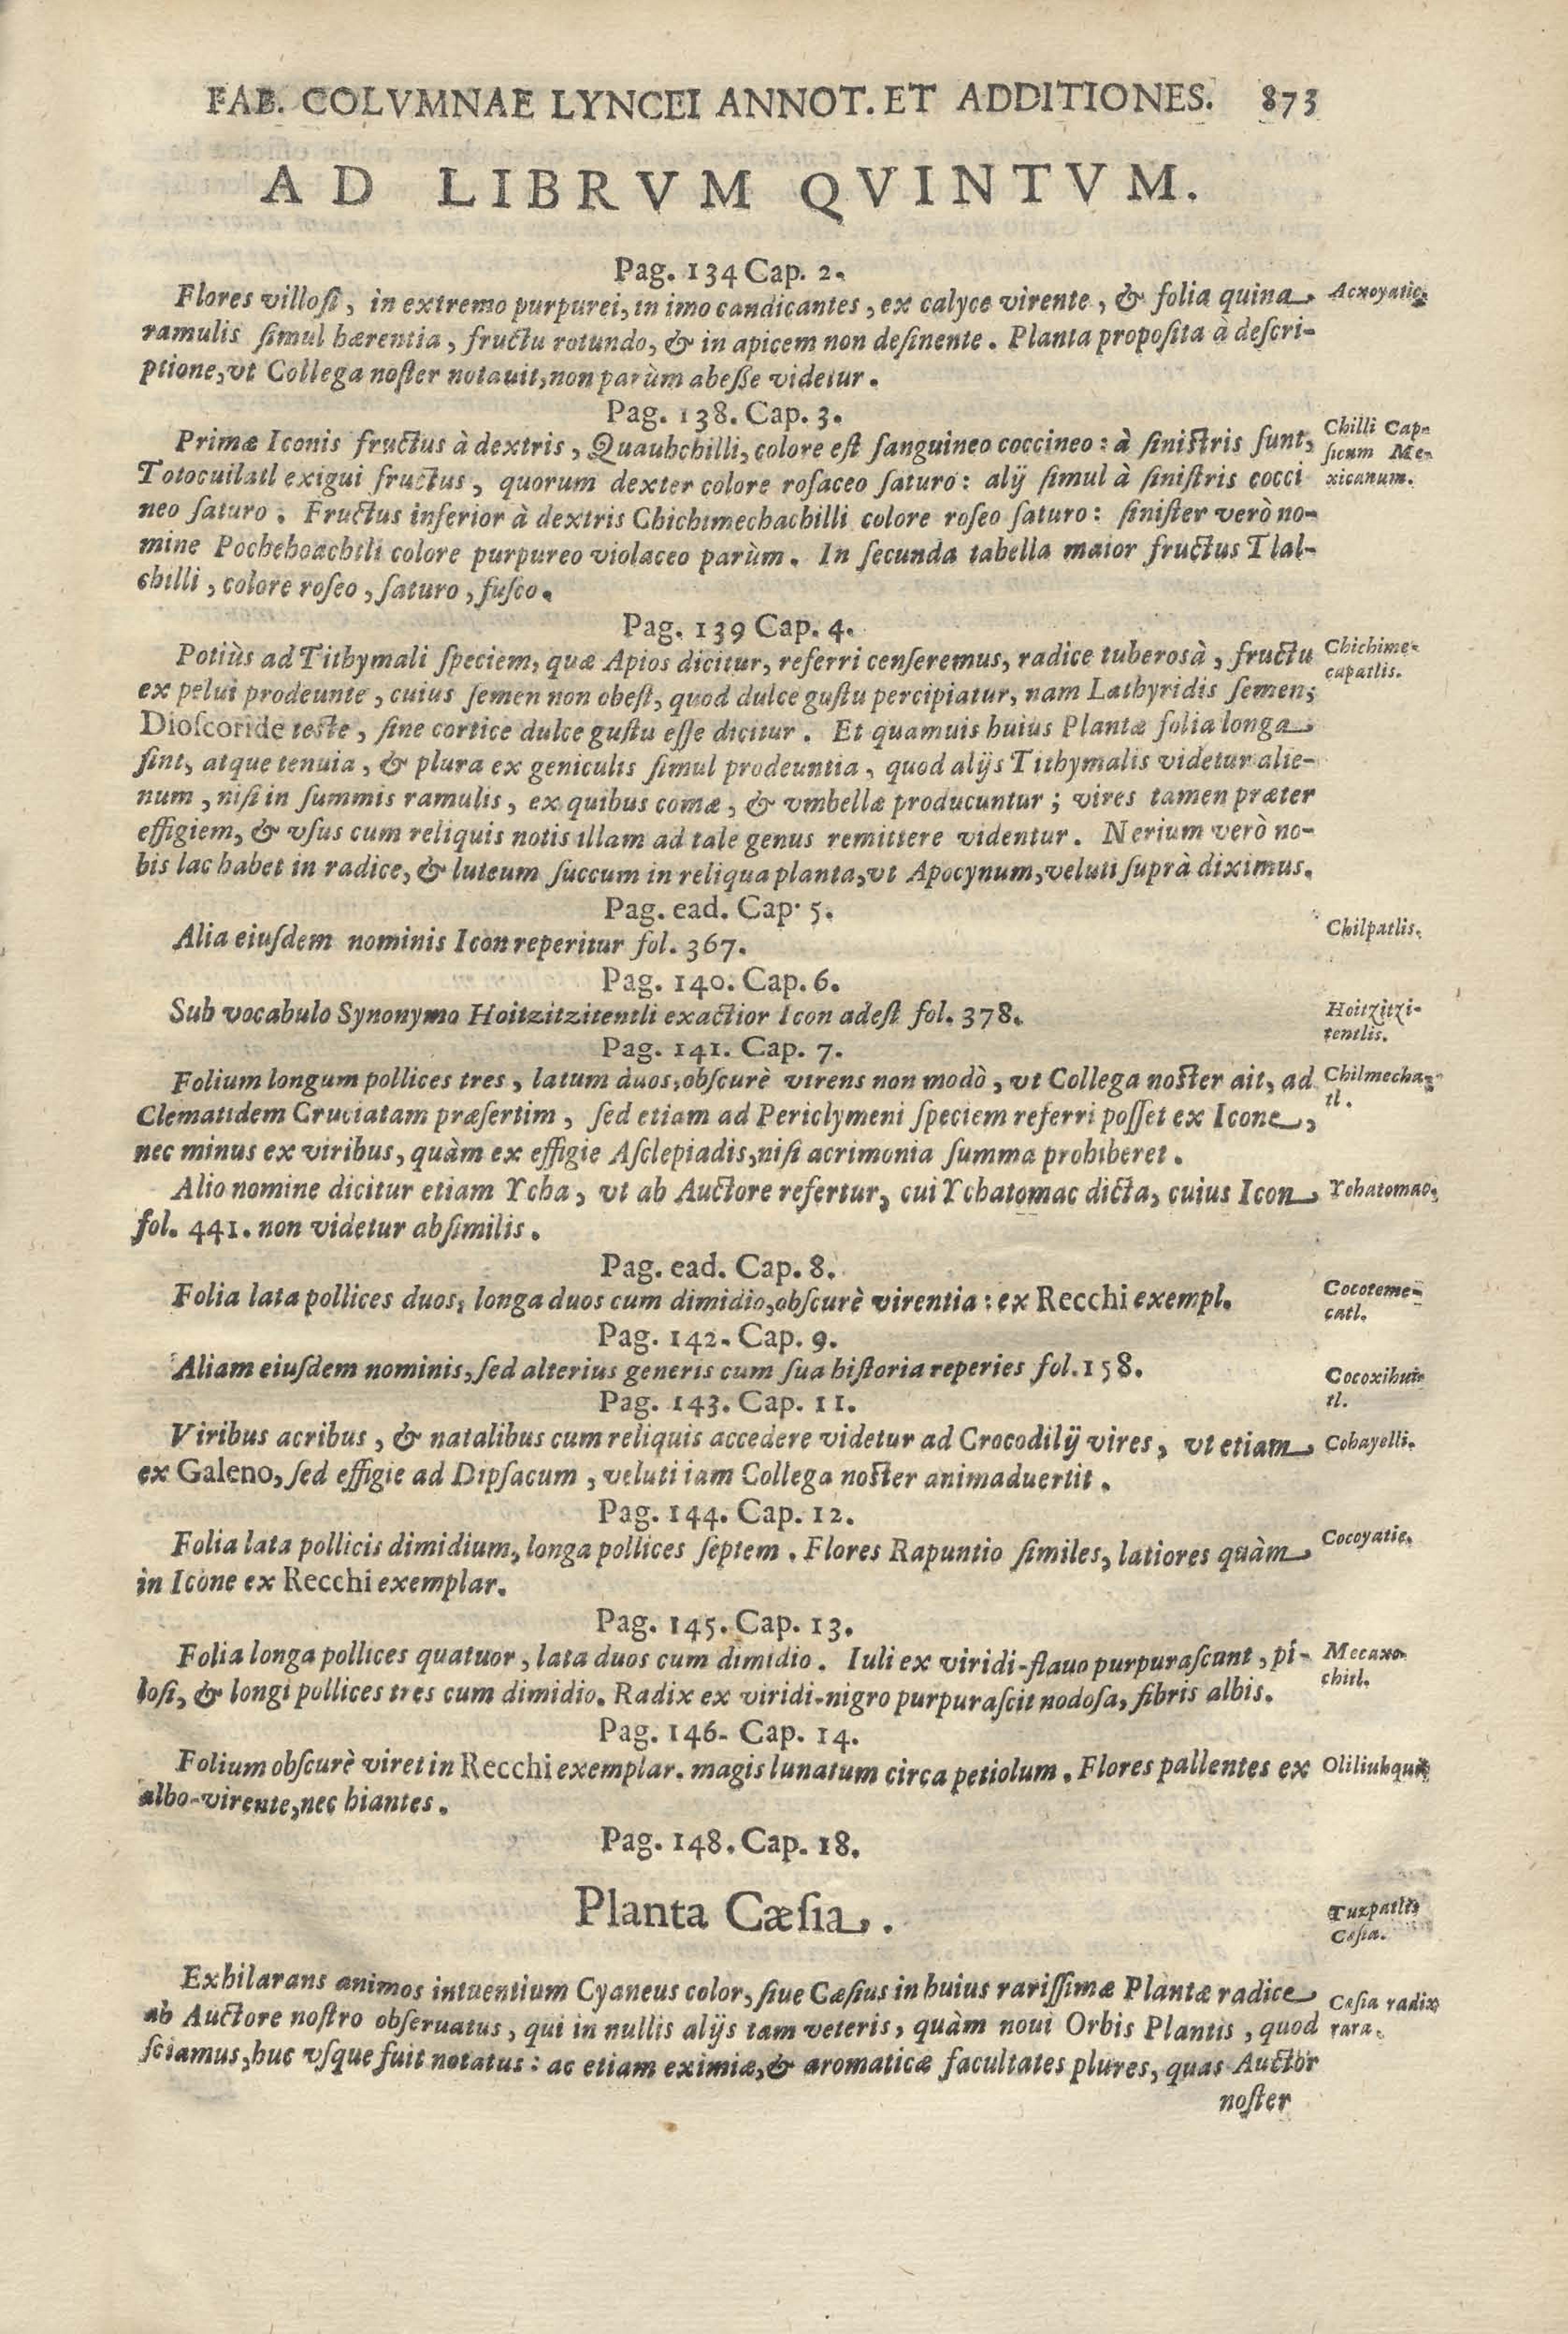 FAB. COLVMNAE LYNCEI ANNOT. ET ADDITIONES. 873
AD LIBRVM QVINTVM.
Pag. 134 Cap. 2.
Flores villoſi, in extremo purpurei, in imo candicantes, ex calyce virente, & folia quina
ramulis ſimul hærentia, fructu rotundo, & in apicem non deſinente. Planta propoſita à deſcri-
ptione, vt Collega noſter notauit, non parùm abeſſe videtur.
Pag. 138. Cap. 3.
Chilli Cap-
ſicum Me-
xicanum.
Primæ Iconis fructus à dextris, Quauhchilli, colore eſt ſanguineo coccineo: à ſiniſtris ſunt,
Totocuilatl exigui fructus, quorum dexter colore roſaceo ſaturo: alij ſimul à ſiniſtris cocci
neo ſaturo. Fructus inferior à dextris Chichimechachilli colore roſeo ſaturo: ſiniſter verò no-
mine Pochehoachili colore purpureo violaceo parùm. In ſecunda tabella maior fructus Tlal-
chilli, colore roſeo, ſaturo, fuſco.
Pag. 139 Cap. 4.
Chichime-
capatlis.
Potiùs ad Tithymali ſpeciem, quæ Apios dicitur, referri cenſeremus, radice tuberosà, fructu
ex pelui prodeunte, cuius ſemen non obeſt, quod dulce guſtu percipiatur, nam Lathyridis ſemen,
Dioſcoride teſte, ſine cortice dulce guſtu eſſe dicitur. Et quamuis huius Plantæ folia longa
ſint, atque tenuia, & plura ex geniculis ſimul prodeuntia, quod alijs Tithymalis videtur alie-
num, niſi in ſummis ramulis, ex quibus comæ, & vmbellæ producuntur; vires tamen præter
effigiem, & vſus cum reliquis notis illam ad tale genus remittere videntur. Nerium verò no-
bis lac habet in radice, & luteum ſuccum in reliqua planta, vt Apocynum, veluti ſuprà diximus.
Pag. ead. Cap. 5.
Alia eiuſdem nominis Icon reperitur fol. 367.
Chilpatlis.
Pag. 140. Cap. 6.
Sub vocabulo Synonymo Hoitzitzitentli exactior Icon adeſt fol. 378.
Hoitzitzi-
tentlis.
Pag. 141. Cap. 7.
Folium longum pollices tres, latum duos, obſcurè virens non modò, vt Collega noſter ait, ad
Clematidem Cruciatam præſertim, ſed etiam ad Periclymeni ſpeciem referri poſſet ex Icone,
nec minus ex viribus, quàm ex effigie Aſclepiadis, niſi acrimonia ſumma prohiberet.
Chilmecha-
tl.
Alio nomine dicitur etiam Ycha, vt ab Auctore refertur, cui Ychatomac dicta, cuius Icon
fol. 441. non videtur abſimilis.
Pag. ead. Cap. 8.
Folia lata pollices duos, longa duos cum dimidio, obſcurè virentia: ex Recchi exempl.
Cocoteme-
catl.
Pag. 142. Cap. 9.
Aliam eiuſdem nominis, ſed alterius generis cum ſua hiſtoria reperies fol. 158.
tl.
Pag. 143. Cap. 11.
Viribus acribus, & natalibus cum reliquis accedere videtur ad Crocodilij vires, vt etiam
ex Galeno, ſed effigie ad Dipſacum, veluti iam Collega noſter animaduertit.
Cohayelli.
Pag. 144. Cap. 12.
Folia lata pollicis dimidium, longa pollices ſeptem. Flores Rapuntio ſimiles, latiores quàm
in Icone ex Recchi exemplar.
Cocoyatic.
Pag. 145. Cap. 13.
Folia longa pollices quatuor, lata duos cum dimidio. Iuli ex viridi-flauo purpuraſcunt, pi-
loſi, & longi pollices tres cum dimidio. Radix ex viridi-nigro purpuraſcit nodoſa, fibris albis.
Mecaxo-
chitl.
Pag. 146. Cap. 14.
Folium obſcurè viret in Recchi exemplar. magis lunatum circa petiolum. Flores pallentes ex
albo-virente, nec hiantes.
Pag. 148. Cap. 18.
Planta Cæſia.
Tuzpatlis
Cæſia.
Exhilarans animos intuentium Cyaneus color, ſiue Cæſius in huius rariſſimæ Plantæ radice
ab Auctore noſtro obſeruatus, qui in nullis alijs tam veteris, quàm noui Orbis Plantis, quod
ſciamus, huc vſque fuit notatus: ac etiam eximiæ, & aromaticæ facultates plures, quas Auctor
Cæſia radix
rara.
noſter